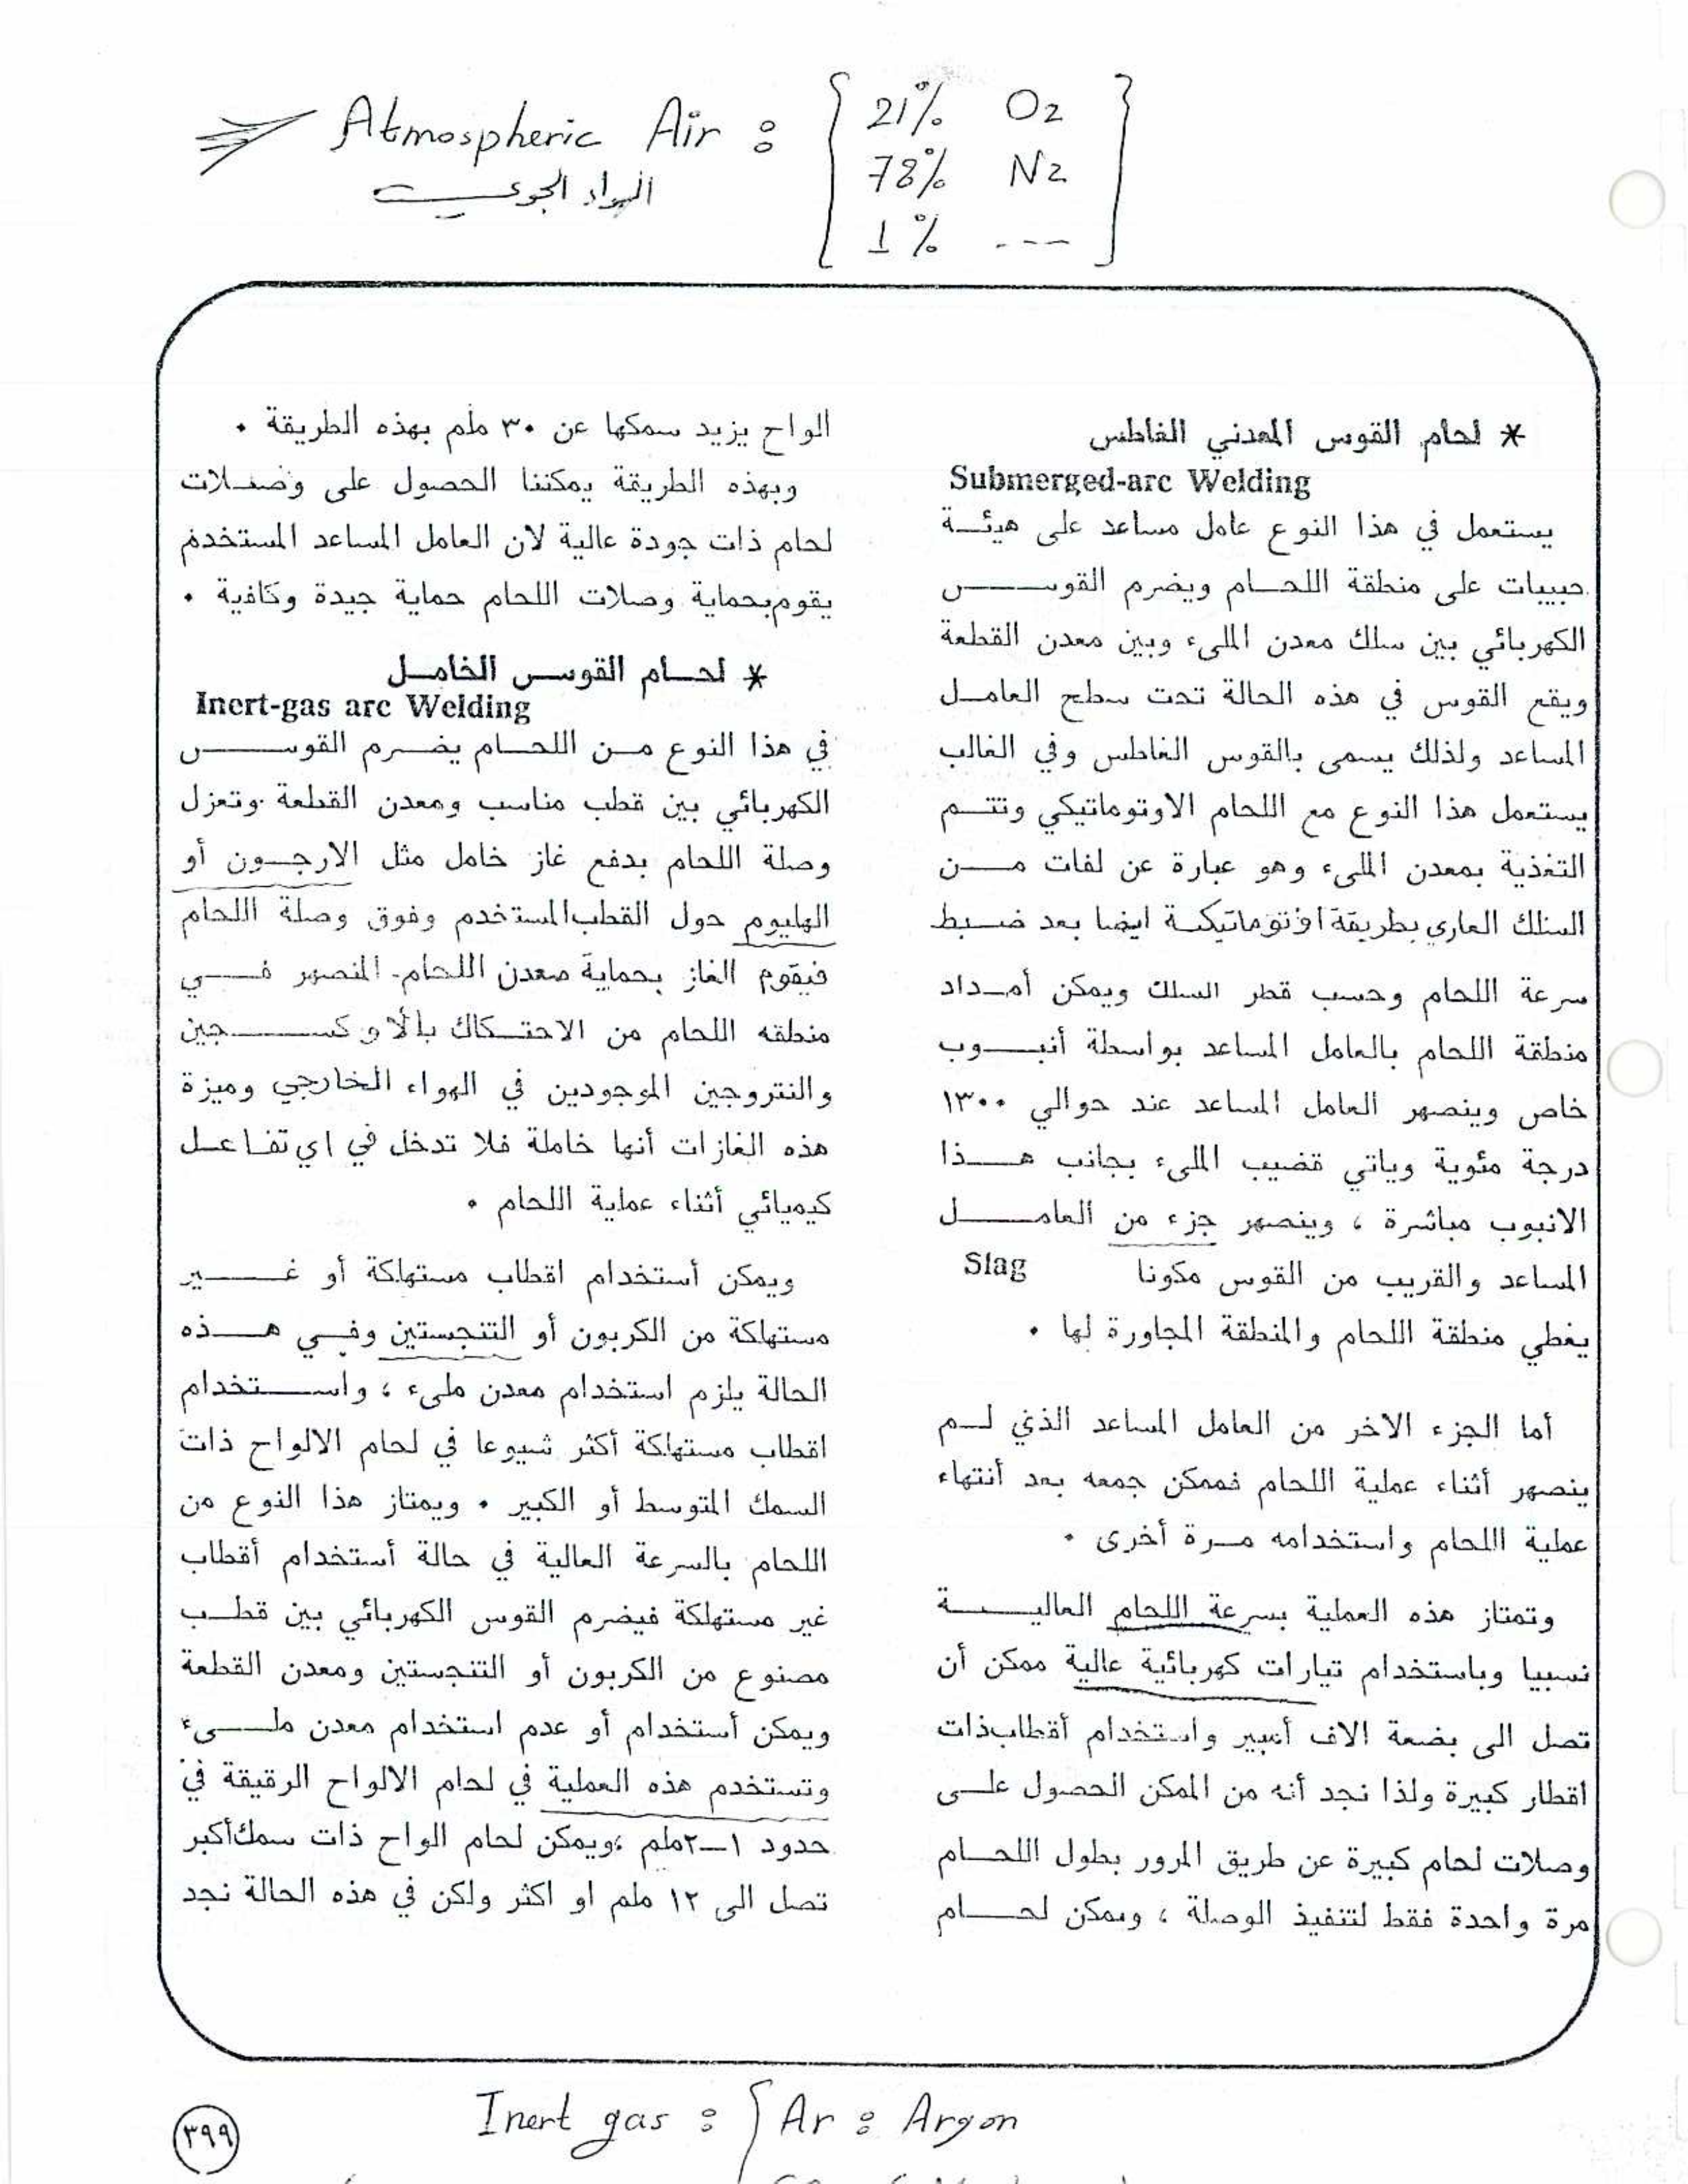 Atmospheric Air : { 21% O2
78% N2
1% --- }
الهواء الجوي
* لحام القوس المعدني الغاطس
Submerged-arc Welding
يستعمل في هذا النوع عامل مساعد على هيئـة
حبيبات على منطقة اللحـام ويضرم القوـس
الكهربائي بين سلك معدن الملىء وبين معدن القطعة
ويقع القوس في هذه الحالة تحت سطح العامـل
المساعد ولذلك يسمى بالقوس الغاطس وفي الغالب
يستعمل هذا النوع مع اللحام الاوتوماتيكي وتتـم
التغذية بمعدن الملىء وهو عبارة عن لفات مـن
السلك العاري بطريقة اوتوماتيكـة ايضا بعد ضـبط
سرعة اللحام وحسب قطر السلك ويمكن أمـداد
منطقة اللحام بالعامل المساعد بواسطة أنبـوب
خاص وينصهر العامل المساعد عند حوالي ١٣٠٠
درجة مئوية وياتي قضيب الملىء بجانب هـذا
الانبوب مباشرة ، وينصهر جزء من العامـل
المساعد والقريب من القوس مكونا Slag
يغطي منطقة اللحام والمنطقة المجاورة لها .
أما الجزء الاخر من العامل المساعد الذي لـم
ينصهر أثناء عملية اللحام فممكن جمعه بعد أنتهاء
عملية اللحام واستخدامه مـرة أخرى .
وتمتاز هذه العملية بسرعة اللحام العاليـة
نسبيا وباستخدام تيارات كهربائية عالية ممكن أن
تصل الى بضعة الاف أمبير واستخدام أقطاب ذات
اقطار كبيرة ولذا نجد أنه من الممكن الحصول علـى
وصلات لحام كبيرة عن طريق المرور بطول اللحـام
مرة واحدة فقط لتنفيذ الوصلة ، ويمكن لحـام
الواح يزيد سمكها عن ٣٠ ملم بهذه الطريقة .
وبهذه الطريقة يمكننا الحصول على وصـلات
لحام ذات جودة عالية لان العامل المساعد المستخدم
يقوم بحماية وصلات اللحام حماية جيدة وكافية .
* لحـام القوـس الخامـل
Inert-gas arc Welding
في هذا النوع مـن اللحـام يضـرم القوـس
الكهربائي بين قطب مناسب ومعدن القطعة وتعزل
وصلة اللحام بدفع غاز خامل مثل الارجـون أو
الهليوم حول القطب المستخدم وفوق وصلة اللحام
فيقوم الغاز بحماية معدن اللحام المنصهر فـي
منطقه اللحام من الاحتـكاك بالأوكسـجين
والنتروجين الموجودين في الهواء الخارجي وميزة
هذه الغازات أنها خاملة فلا تدخل في اي تفـاعـل
كيميائي أثناء عملية اللحام .
ويمكن أستخدام اقطاب مستهلكة أو غـير
مستهلكة من الكربون أو التنجستين وفـي هـذه
الحالة يلزم استخدام معدن ملىء ، واسـتخدام
اقطاب مستهلكة أكثر شيوعا في لحام الالواح ذات
السمك المتوسط أو الكبير . ويمتاز هذا النوع من
اللحام بالسرعة العالية في حالة أستخدام أقطاب
غير مستهلكة فيضرم القوس الكهربائي بين قطـب
مصنوع من الكربون أو التنجستين ومعدن القطعة
ويمكن أستخدام أو عدم استخدام معدن ملـىء
وتستخدم هذه العملية في لحام الالواح الرقيقة في
حدود ١–٢ملم ،ويمكن لحام الواح ذات سمك أكبر
تصل الى ١٢ ملم او اكثر ولكن في هذه الحالة نجد
Inert gas : { Ar : Argon
٣٩٩